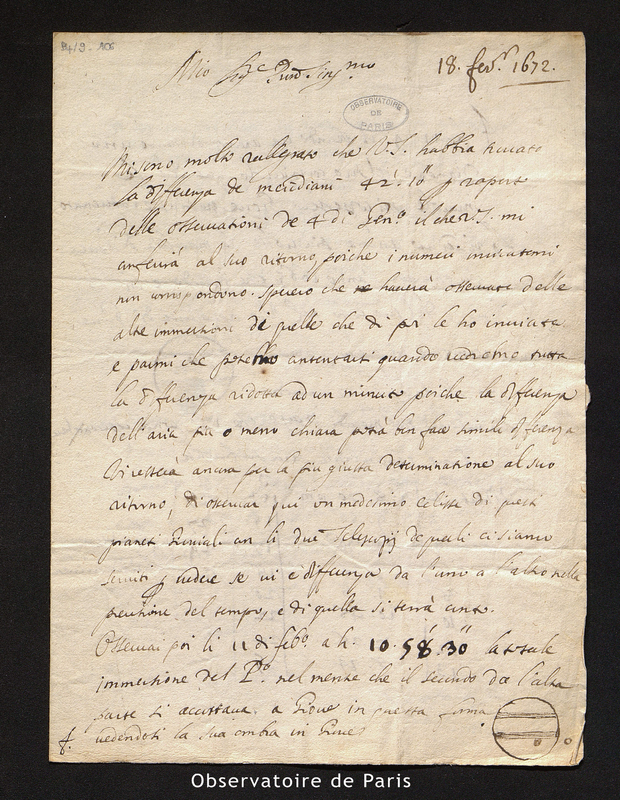 B4/9-106
Mio Sig.re
18. feb.ro 1672.
OBSERVATOIRE
DE
PARIS
Mi sono molto rallegrato che V.S. habbia trovato
la differenza de meridiani 42'. 10" p raporto
delle osservationi de 4 di Gen.o il che V.S. mi
al suo ritorno, poiche i numeri
non corrispondono. spero che haverà osservate delle
altre immersioni di quelle che di poi le ho inviate
e parmi che quando vedremo tutta
la differenza ridotta ad un minuto poiche la differenza
dell'aria piu o meno chiara potrà ben fare simile differenza
Ci resterà ancora per la piu giusta determinatione al suo
ritorno, di osservar qui un medesimo eclisse di questi
pianeti Gioviali con li due Telescopij de quali ci siamo
serviti p vedere se vi è differenza da l'uno a l'altro nella
del tempo, e di quella si terrà conto.
Osservai poi li 11 di feb.o a h. 10. 58'. 30" la totale
immersione del P.o nel mentre che il secondo da l'altra
parte si accostava a Giove in questa forma
vedendosi la sua ombra in Giove
Observatoire de Paris